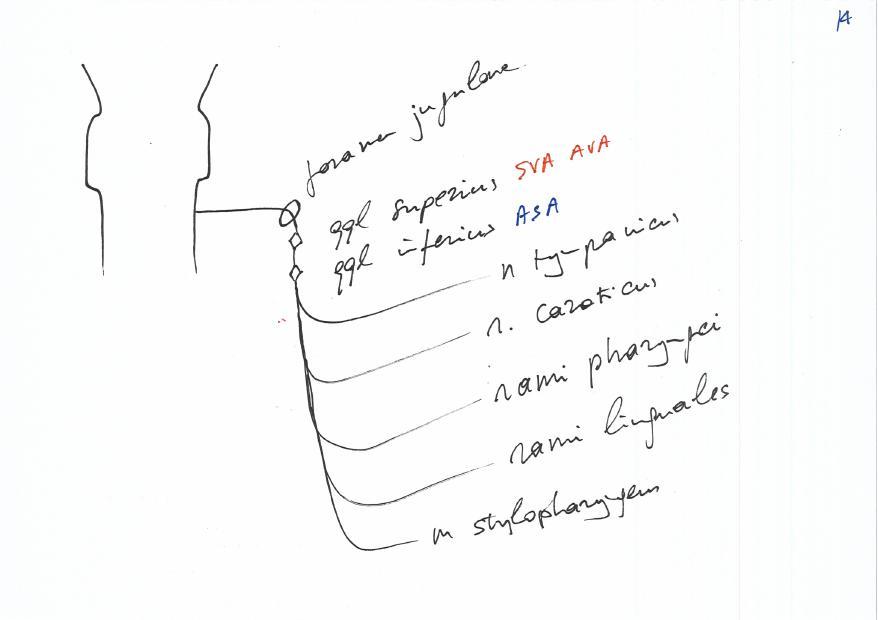 14
foramen jugulare
ggl superius SVA AVA
ggl inferius ASA
n tympanicus
r. caroticus
rami pharyngei
rami linguales
m stylopharyngeus